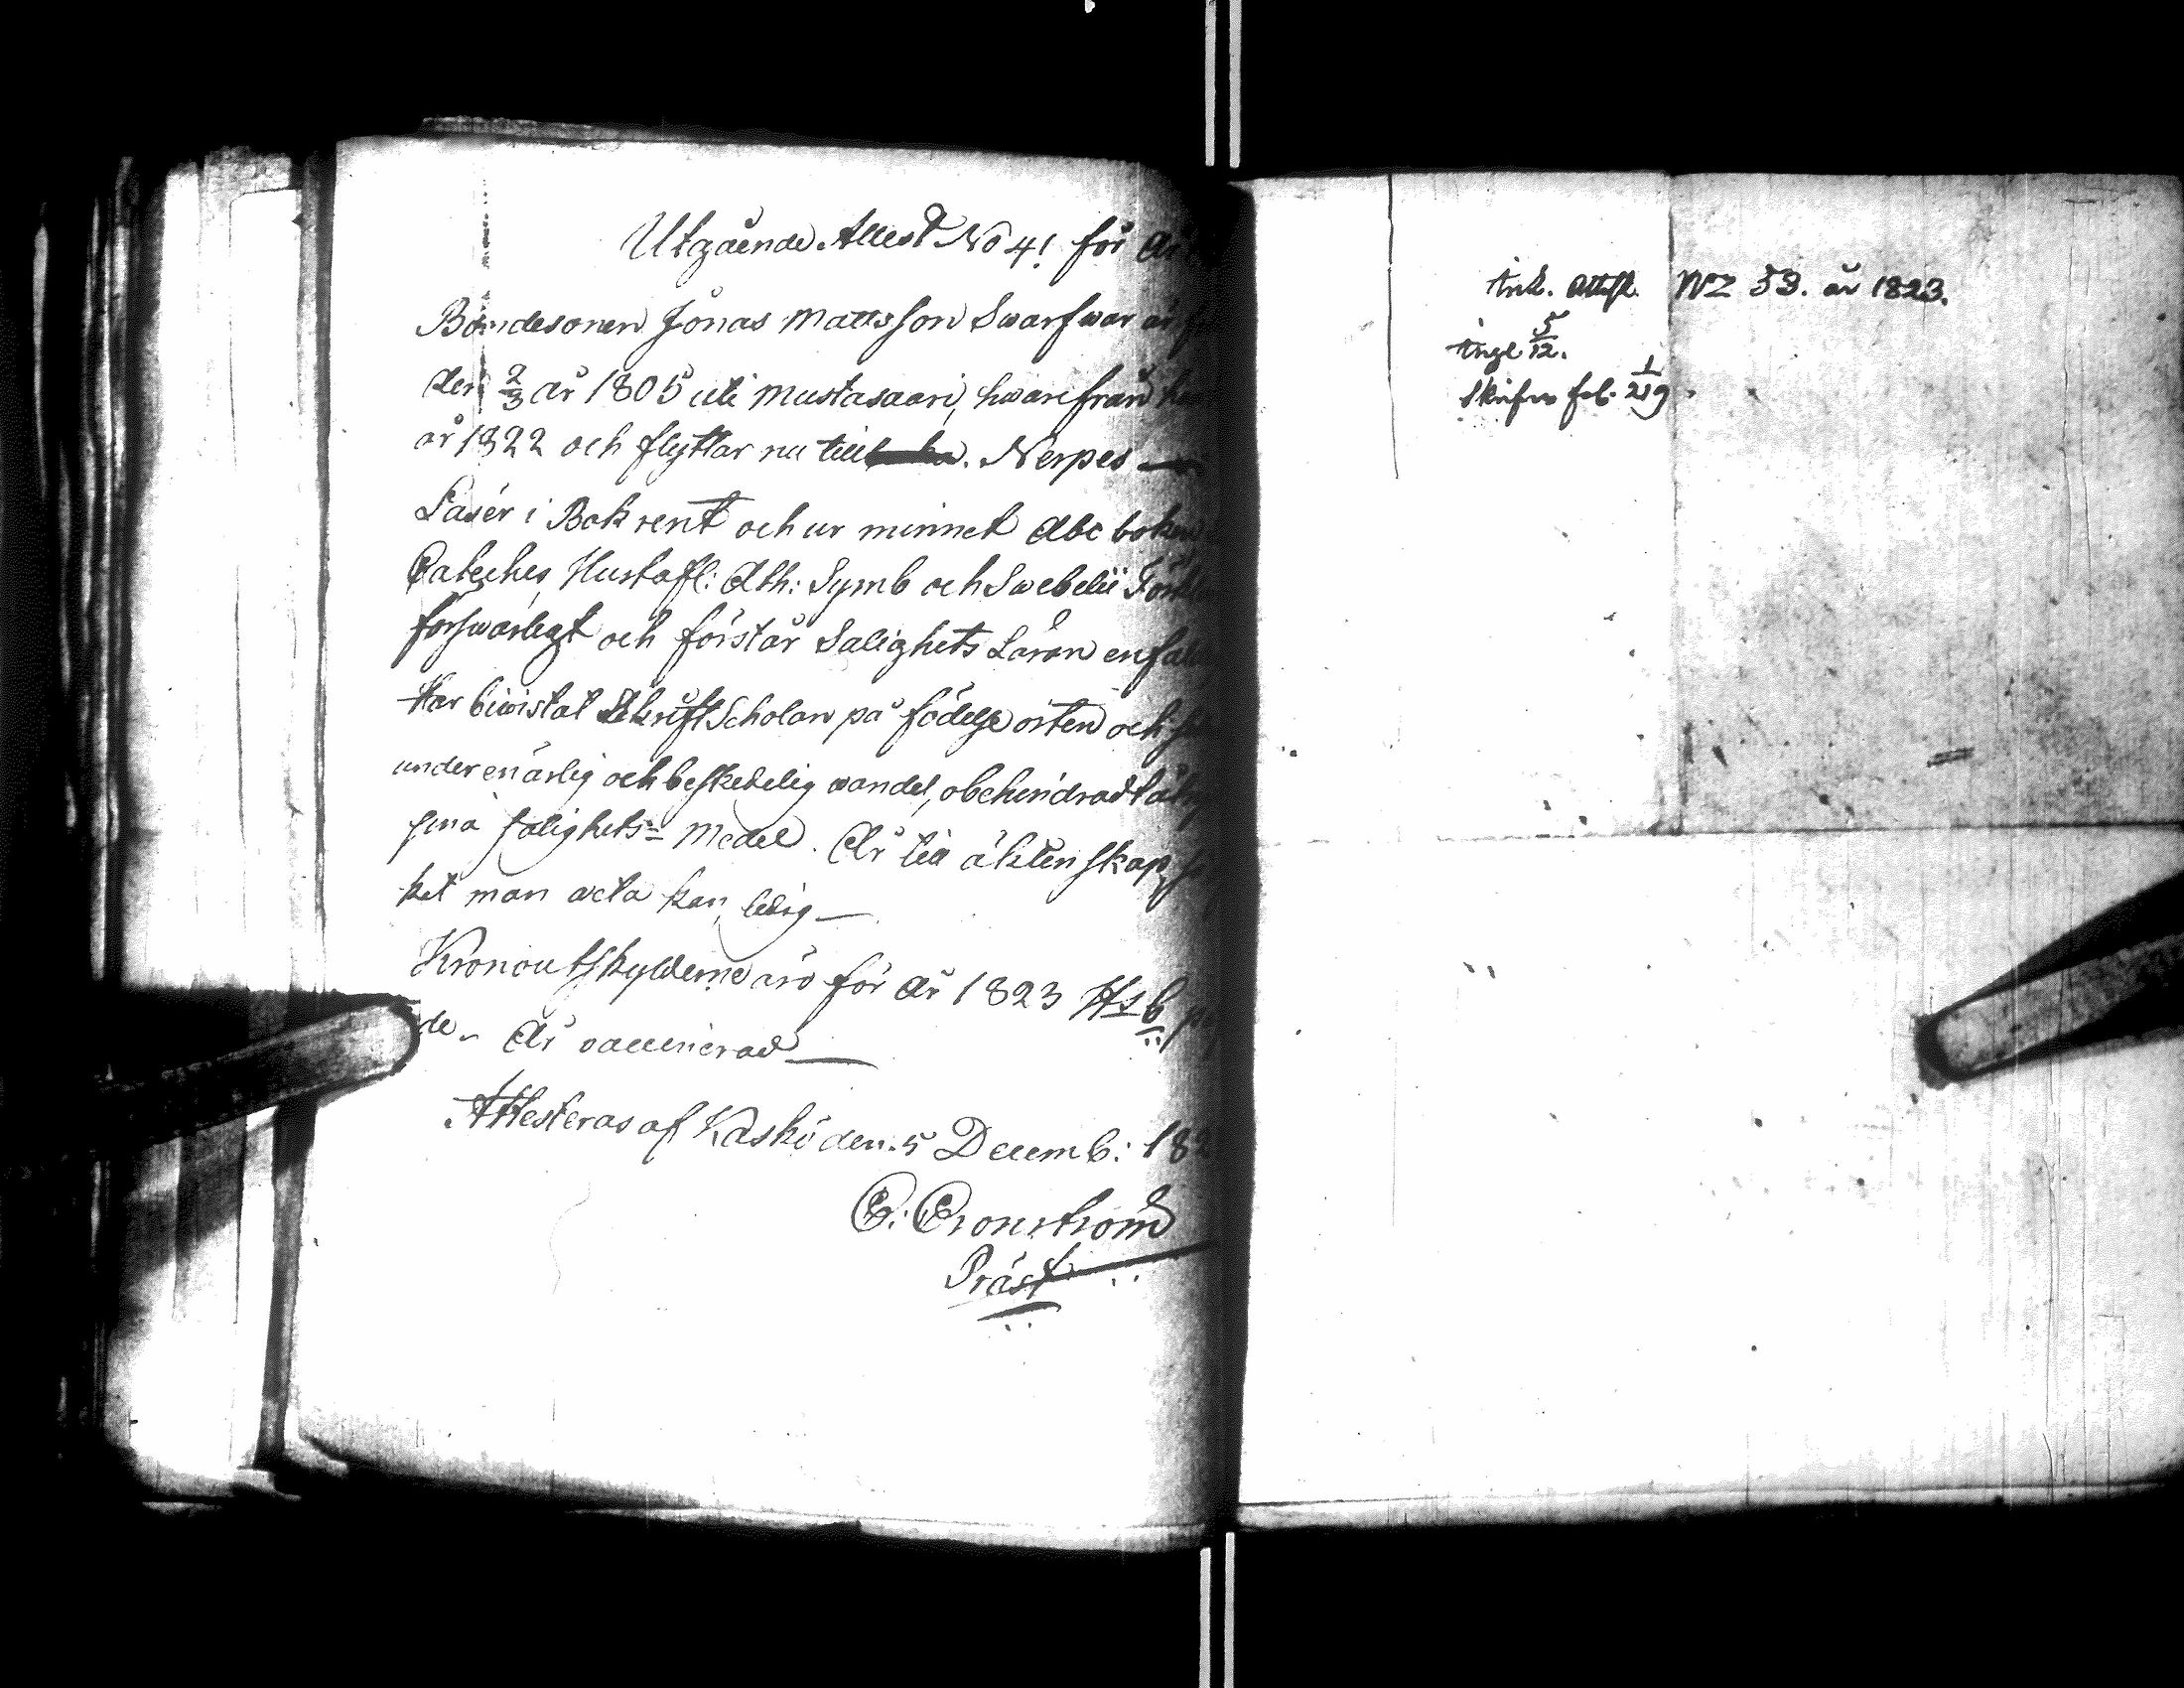 Utgående Attest No 41 för År
Bondesonen Jonas Mattsson Swarfwar är
den 2/3 år 1805 uti Mustasaari, hwarifrån
år 1822 och flyttar nu till Nerpes
Läser i Bok rent och ur minnet Abc boken
Cateches, Hustafl: Ath: Symb och Swebelii
förswarligt och förstår Salighets Läran
Har biwistat SkriftScholan på födelse orten och
under en ärlig och beskedelig wandel, obehindrad
sina salighets= Medel. Är till äktenskap,
ket man weta kan, ledig —
Kronoutskylderne äro för År 1823 Hsb
de. Är vaccinerad —
Attesteras af Kaskö den 5 Decemb: 182
C. Cronström
Präst
Ink. Attest. No 53. år 1823.
Ingl 5/12.
Skrifwen fol. 219